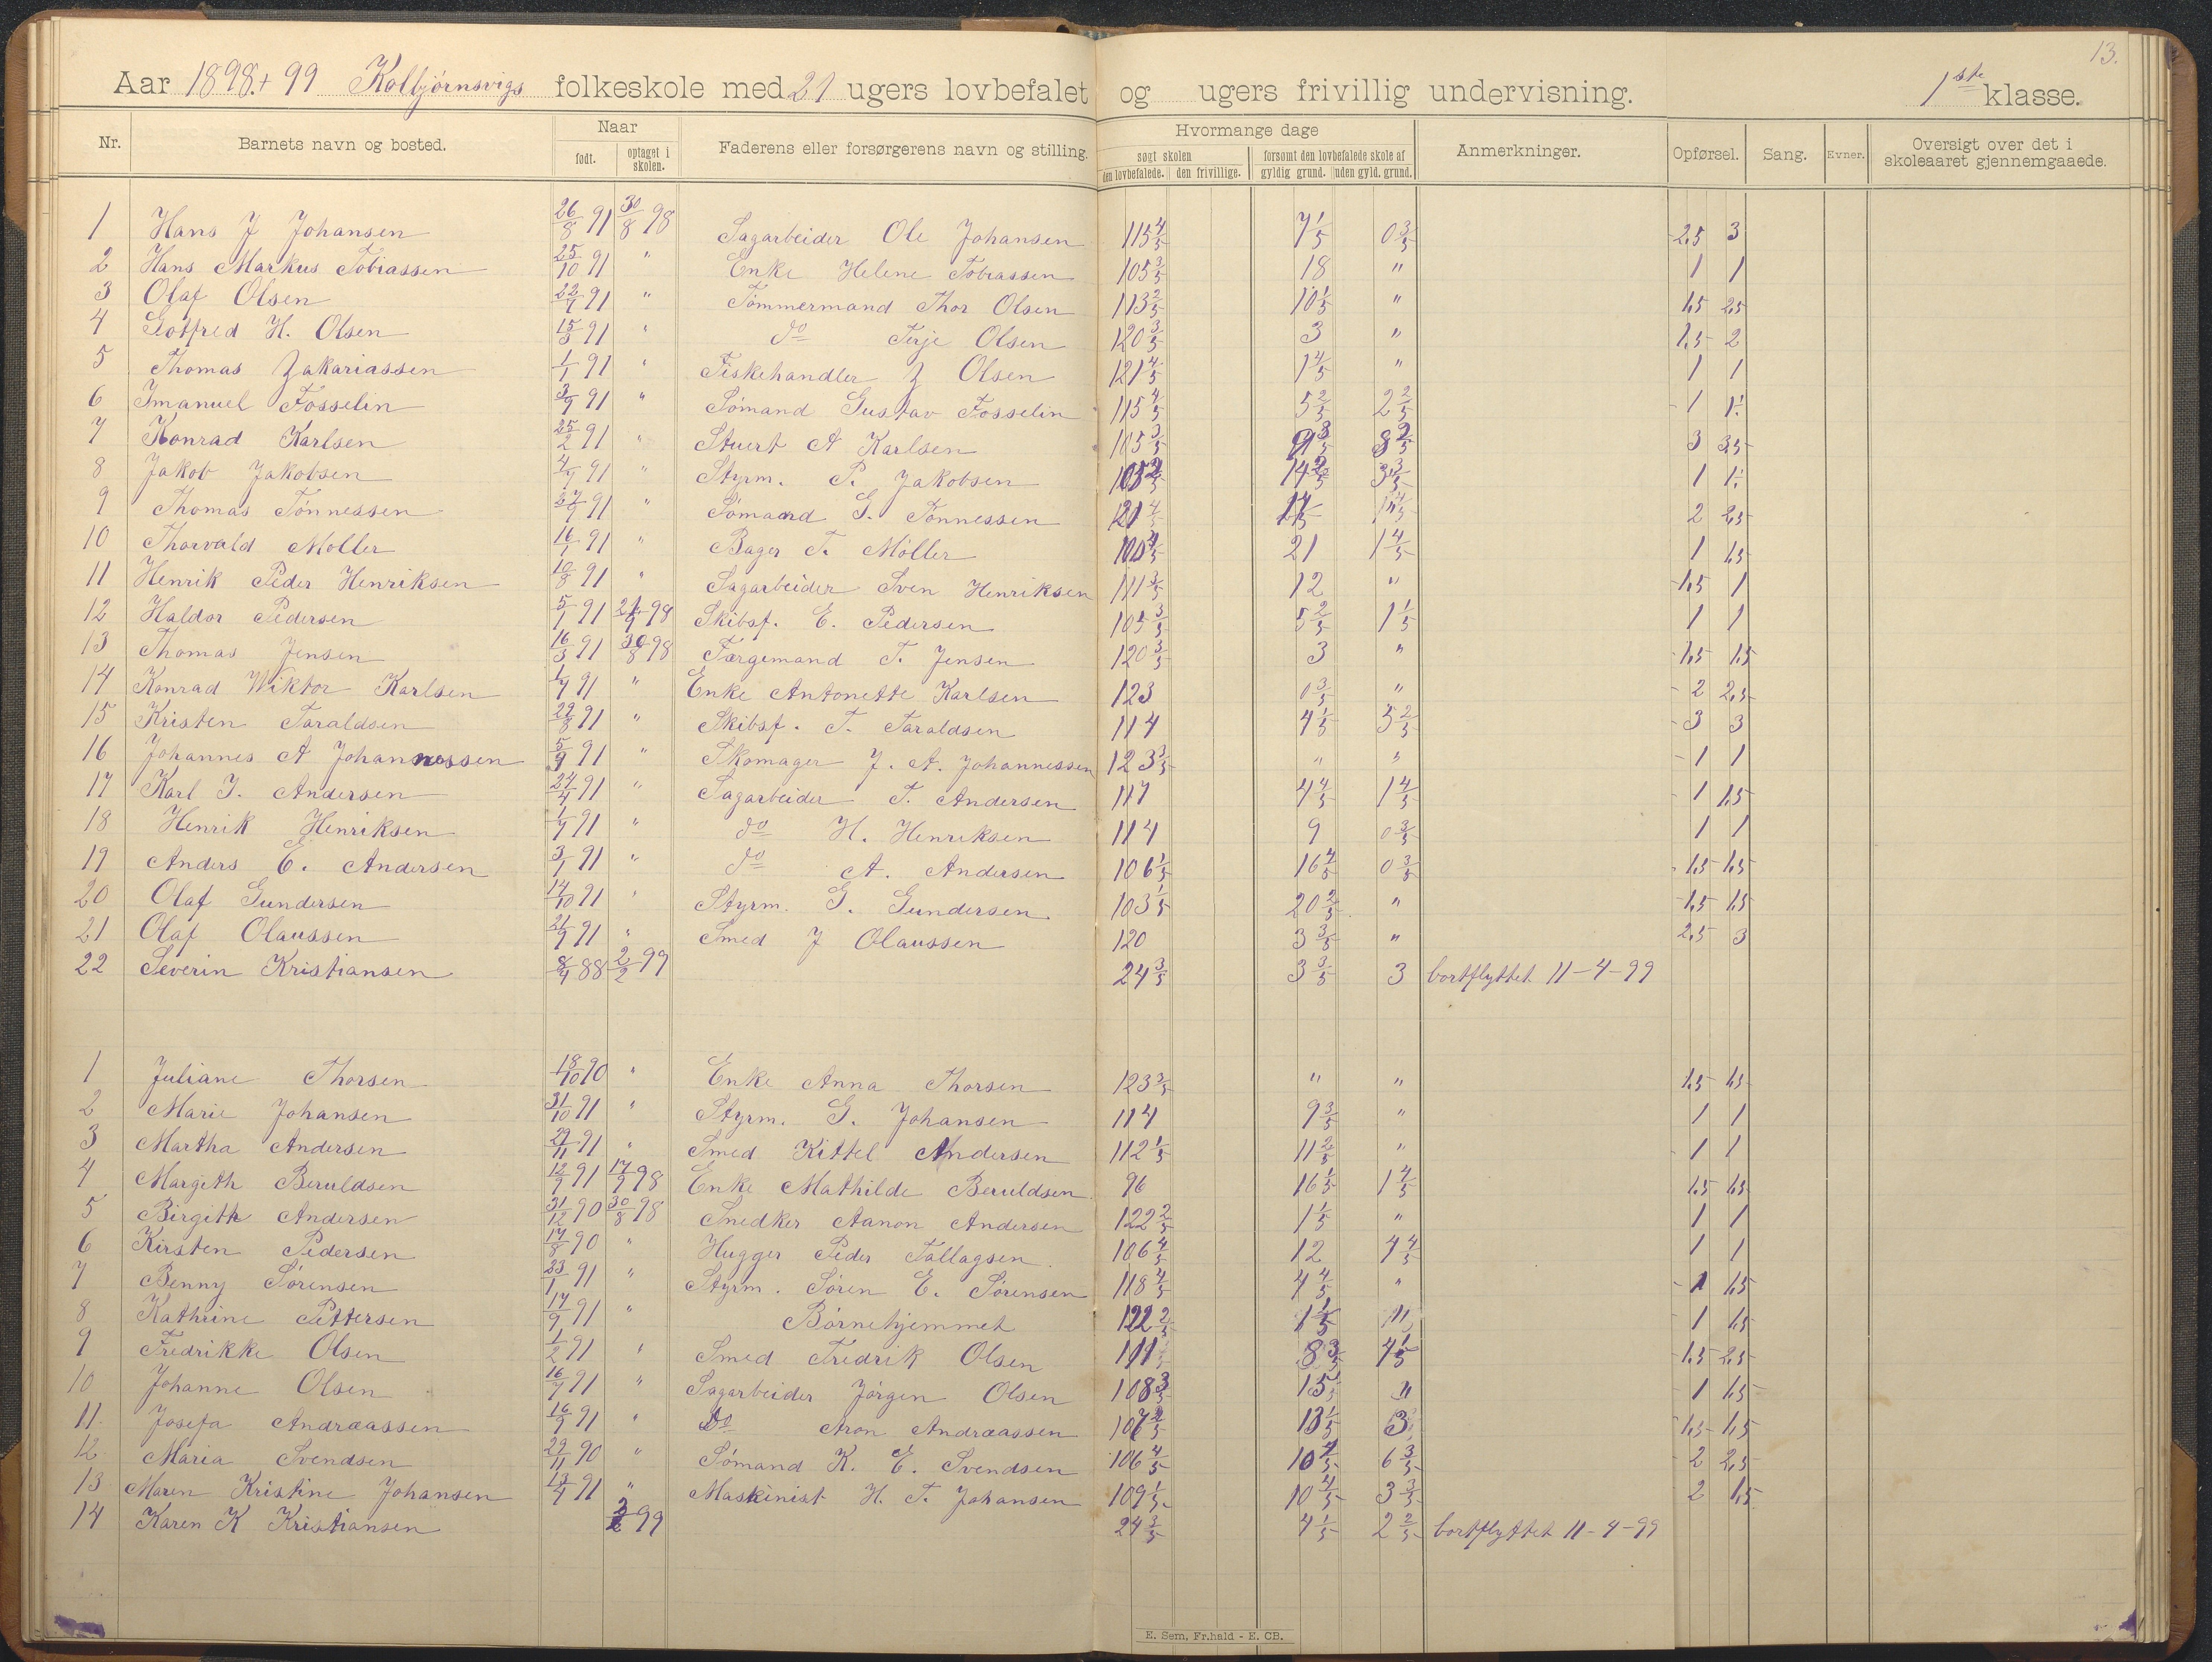 13.
Aar 1898 + 99 Kolbjørnsvigs folkeskole med 21 ugers lovbefalet og ugers frivillig undervisning. 1ste klasse.
Nr. Barnets navn og bosted. Naar født. optaget i skolen. Faderens eller forsørgerens navn og stilling. Hvormange dage søgt skolen den lovbefalede. den frivillige. forsømt den lovbefalede skole af gyldig grund. uden gyld. grund. Anmerkninger. Opførsel. Sang. Evner. Oversigt over det i skoleaaret gjennemgaaede.
1 Hans J Johansen 26/8 91 30/8 98 Sagarbeider Ole Johansen 115 4/5 7 1/5 0 3/5 2,5 3
2 Hans Markus Tobiassen 25/10 91 " Enke Helene Tobiassen 105 3/5 18 " 1 1
3 Olaf Olsen 22/7 91 " Tømmermand Thor Olsen 113 2/5 10 1/5 " 1,5 2,5
4 Gotfred H. Olsen 15/3 91 " do Terje Olsen 120 3/5 3 " 1,5 2
5 Thomas Zakariassen 1/1 91 " Fiskehandler Z Olsen 121 4/5 1 4/5 " 1 1
6 Imanuel Fosselin 3/9 91 " Sømand Gustav Fosselin 115 4/5 5 2/5 2 2/5 1 1
7 Konrad Karlsen 25/2 91 " Stuert A Karlsen 105 3/5 9 3/5 8 2/5 3 3,5
8 Jakob Jakobsen 4/7 91 " Styrm. P. Jakobsen 105 2/5 14 2/5 3 3/5 1 1
9 Thomas Tønnessen 27/9 91 " Sømand G. Tønnessen 121 4/5 1 4/5 2 2,5
10 Thorvald Møller 16/1 91 " Bager T. Møller 100 4/5 21 1 4/5 1 1,5
11 Henrik Peder Henriksen 10/8 91 " Sagarbeider Sven Henriksen 111 3/5 12 " 1,5 1
12 Haldor Pedersen 5/1 91 21/9 98 Skibsf. E. Pedersen 105 3/5 5 2/5 1 1/5 1 1
13 Thomas Jensen 16/3 91 30/8 98 Færgemand T. Jensen 120 3/5 3 " 1,5 1,5
14 Konrad Wiktor Karlsen 1/7 91 " Enke Antonette Karlsen 123 0 3/5 " 2 2,5
15 Kristen Taraldsen 29/8 91 " Skibsf. T. Taraldsen 114 4 1/5 5 2/5 3 3
16 Johannes A Johannessen 5/9 91 " Skomager J. A. Johannessen 123 3/5 " " 1 1
17 Karl J. Andersen 24/4 91 " Sagarbeider T. Andersen 117 4 4/5 1 4/5 1 1,5
18 Henrik Henriksen 1/7 91 " do H. Henriksen 114 9 0 3/5 1 1
19 Anders E. Andersen 3/1 91 " do A. Andersen 106 1/5 16 4/5 0 3/5 1,5 1,5
20 Olaf Gundersen 14/10 91 " Styrm. G. Gundersen 103 1/5 20 2/5 " 1,5 1,5
21 Olaf Olaussen 21/9 91 " Smed J Olaussen 120 3 3/5 " 2,5 3
22 Severin Kristiansen 8/4 88 2/2 99 24 3/5 3 3/5 3 bortflyttet 11-4-99
1 Juliane Thorsen 18/10 90 " Enke Anna Thorsen 123 3/5 " " 1,5 1,5
2 Marie Johansen 31/10 91 " Styrm. G. Johansen 114 9 3/5 " 1 1
3 Martha Andersen 29/11 91 " Smed Kittel Andersen 112 1/5 11 2/5 " 1 1
4 Margith Beruldsen 12/9 91 17/9 98 Enke Mathilde Beruldsen 96 16 1/5 1 4/5 1,5 1,5
5 Birgith Andersen 31/12 90 30/8 98 Snedker Aanon Andersen 122 2/5 1 1/5 " 1 1
6 Kirsten Pedersen 17/8 90 " Hugger Peder Tallagsen. 106 4/5 12 4 4/5 1 1
7 Benny Sørensen 23/1 91 " Styrm. Søren E. Sørensen 118 4/5 4 4/5 " 1 1,5
8 Kathrine Pettersen 17/9 91 " Børnehjemmet 122 2/5 1 1/5 " 1 1,5
9 Fredrikke Olsen 1/2 91 " Smed Fredrik Olsen 111 8 3/5 4 1/5 1,5 2,5
10 Johanne Olsen 16/7 91 " Sagarbeider Jørgen Olsen 108 3/5 15 " 1 1,5
11. Josefa Andraassen 16/9 91 " Do Aron Andraassen 107 2/5 13 1/5 3 1,5 1,5
12 Maria Svendsen 29/11 90 " Sømand K. E. Svendsen 106 4/5 10 4/5 6 3/5 2 2,5
13 Maren Kristine Johansen 13/4 91 " Maskinist H. T. Johansen 109 1/5 10 4/5 3 3/5 2 1,5
14 Karen K Kristiansen 2/2 99 24 3/5 4 1/5 2 2/5 bortflyttet 11-4-99
E. Sem, Fr.hald - E. CB.